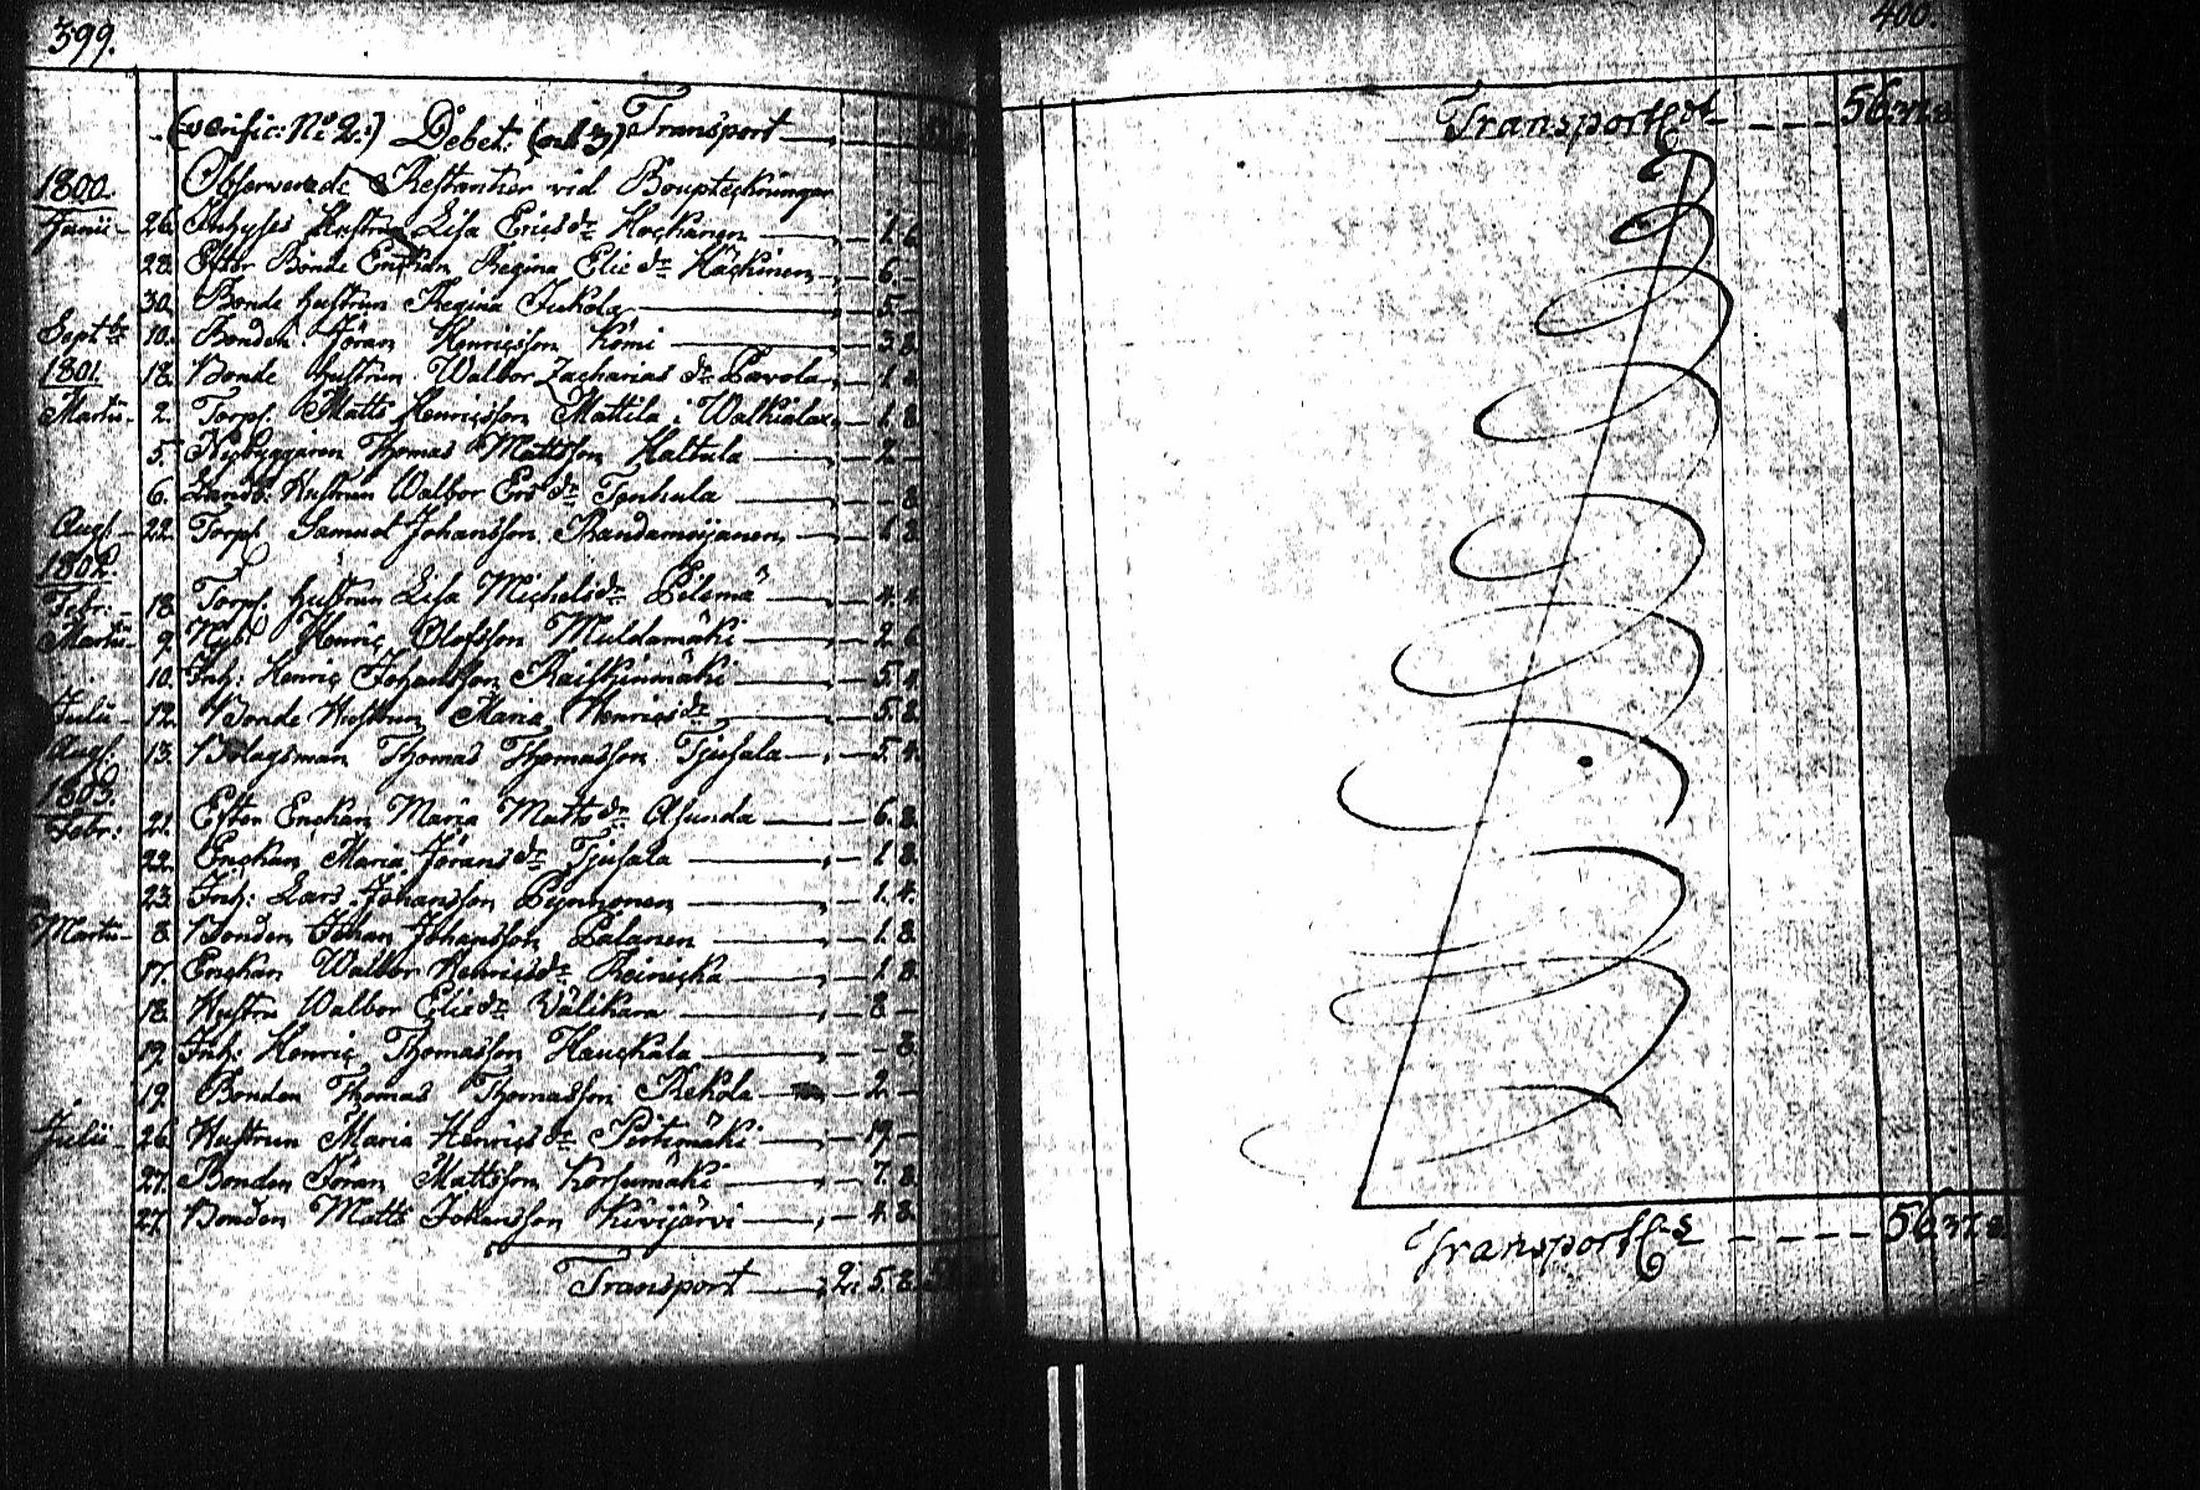 399.
(verific: No 2:) Debet: Transport
1800. Observerade Restantier vid Bouptekningar
Junii - 26. Inhyses Hustrun Lisa Ericsdr Hockanen - 1. 6.
28. Efter Bonde Enckan Regina Eliedr Häckinen - 6. -
30. Bonde hustrun Regina Jukola - 5. -
Septbr 10. Bonden Jöran Henricsson Kömi - 3. 8.
1801. 18. Bonde hustrun Walbor Zacharias dr Pavola - 1.
Martii - 2. Torp. Matts Henricsson Mattila i Walkialax - 1. 8.
5. Nybyggaren Thomas Mattsson Haltula - 2 -
6. Hustrun Walbor Ersdr Tenhula - - 8.
Aug: - 22. Torp. Samuel Johansson - 1. 8.
1802.
Febr: - 18. Torp. hustrun Lisa Michelsdr Pilsmä - 4. 4.
Martii - 9. Nyb: Henric Olofsson Muldamäki - 2. 6.
10. Inh: Henric Johansson Raiskinmäki - 5. 4.
Julii - 12. Bonde Hustrun Maria Henricsdr - 5. 8.
Aug: 13. Bolagsman Thomas Thomasson Tjusala - 5. 4.
1803.
Febr: 21. Efter Enckan Maria Mattsdr Asunda - 6. 8.
22. Enckan Maria Jöransdr Tjusala - 1. 8.
23. Inh: Lars Johansson Pynnonen - 1. 4.
Martii - 8. Bonden Johan Johansson Palanen - 1. 8.
17. Enckan Walbor Henricsdr Reinicka - 1. 8.
18. Hustru Walbor Eliedr Wälikara - 8 -
19. Inh: Henric Thomasson Hauckala - - 8.
19. Bonden Thomas Thomasson Rekola - 2. -
Julii - 26. Hustrun Maria Henricsdr Pirtimäki - 19 -
27. Bonden Jöran Mattsson Korsumäki - 7. 8.
27. Bonden Matts Johansson Kivijärvi - 4. 8.
Transport 2. 5. 8.
400.
Transport 56.37.8
Transport 56.37.8